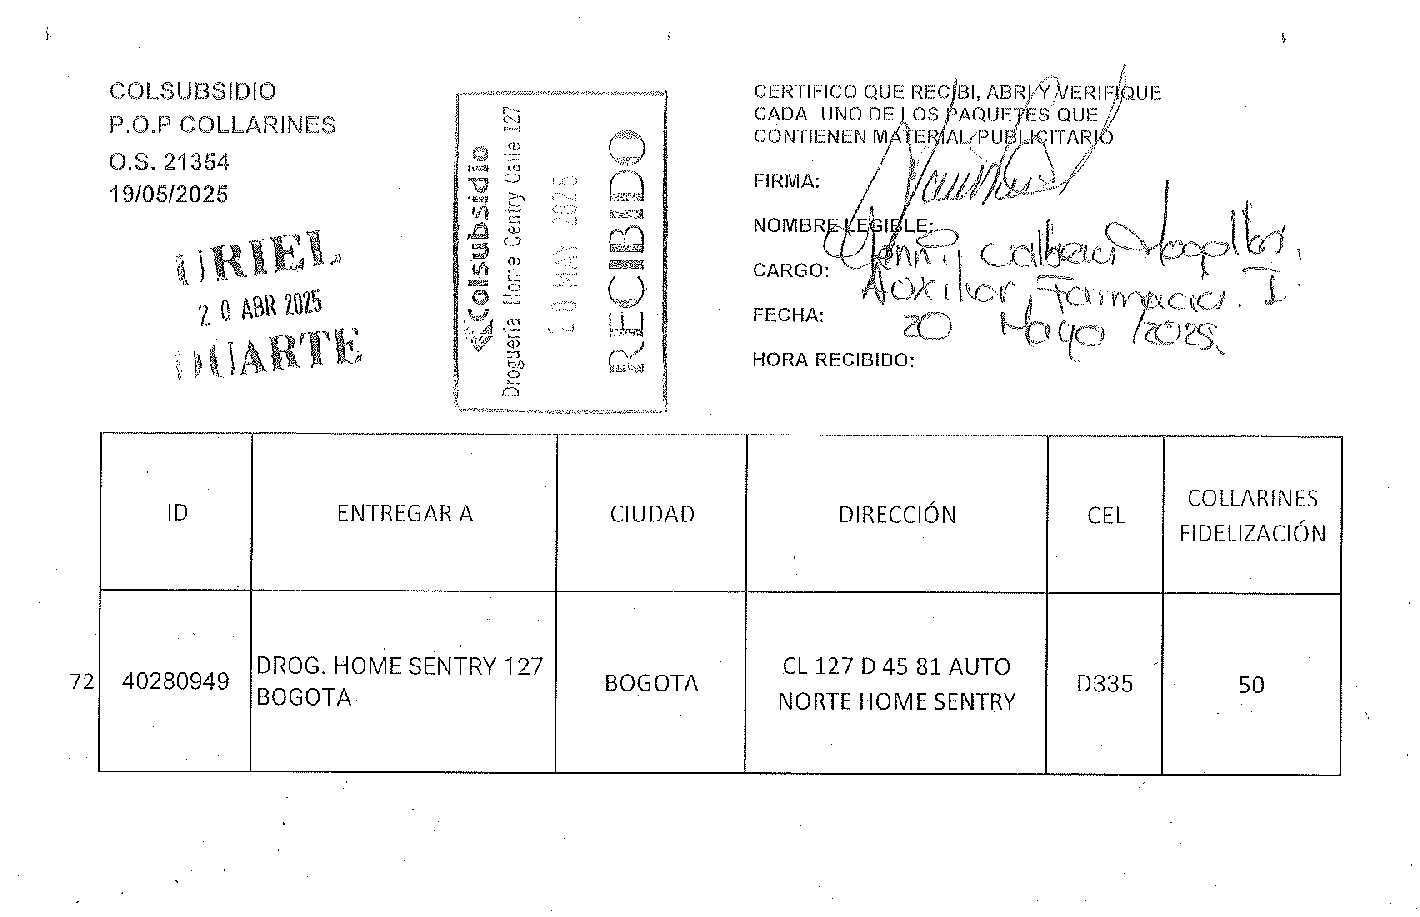 COLSUBSIDIO
P.O.P COLLARINES
O.S. 21354
19/05/2025
URIEL
20 ABR 2025
DUARTE
Colsubsidio
Droguería Home Centry Calle 127
20 MAY 2025
RECIBIDO
CERTIFICO QUE RECIBI, ABRI Y VERIFIQUE
CADA UNO DE LOS PAQUETES QUE
CONTIENEN MATERIAL PUBLICITARIO
FIRMA:
NOMBRE LEGIBLE:
CARGO: Auxiliar Farmacia. I
FECHA: 20 Mayo /2025
HORA RECIBIDO:
ID ENTREGAR A CIUDAD DIRECCIÓN CEL COLLARINES FIDELIZACIÓN
72 40280949 DROG. HOME SENTRY 127 BOGOTA BOGOTA CL 127 D 45 81 AUTO NORTE HOME SENTRY D335 50